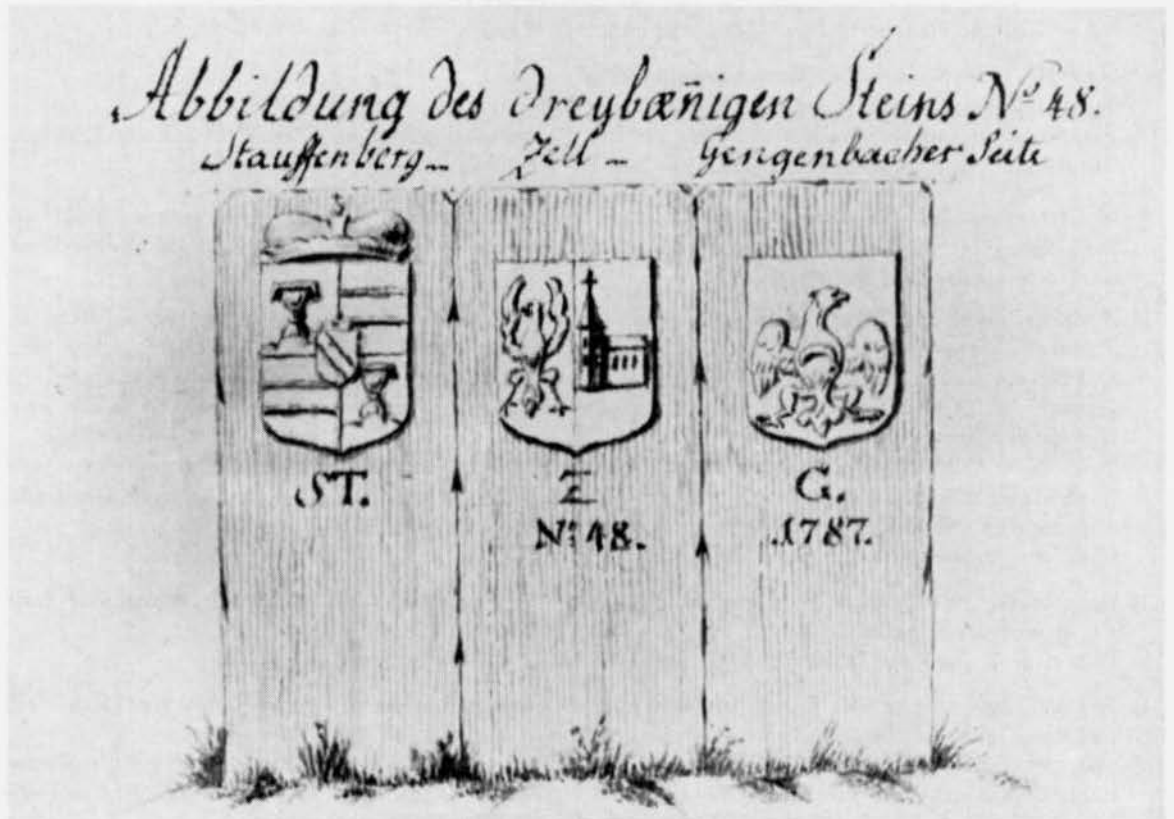 Abbildung des dreybæñigen Steins No 48.
Stauffenberg – Zell – Gengenbacher Seite
ST. Z G.
No: 48. .1787.